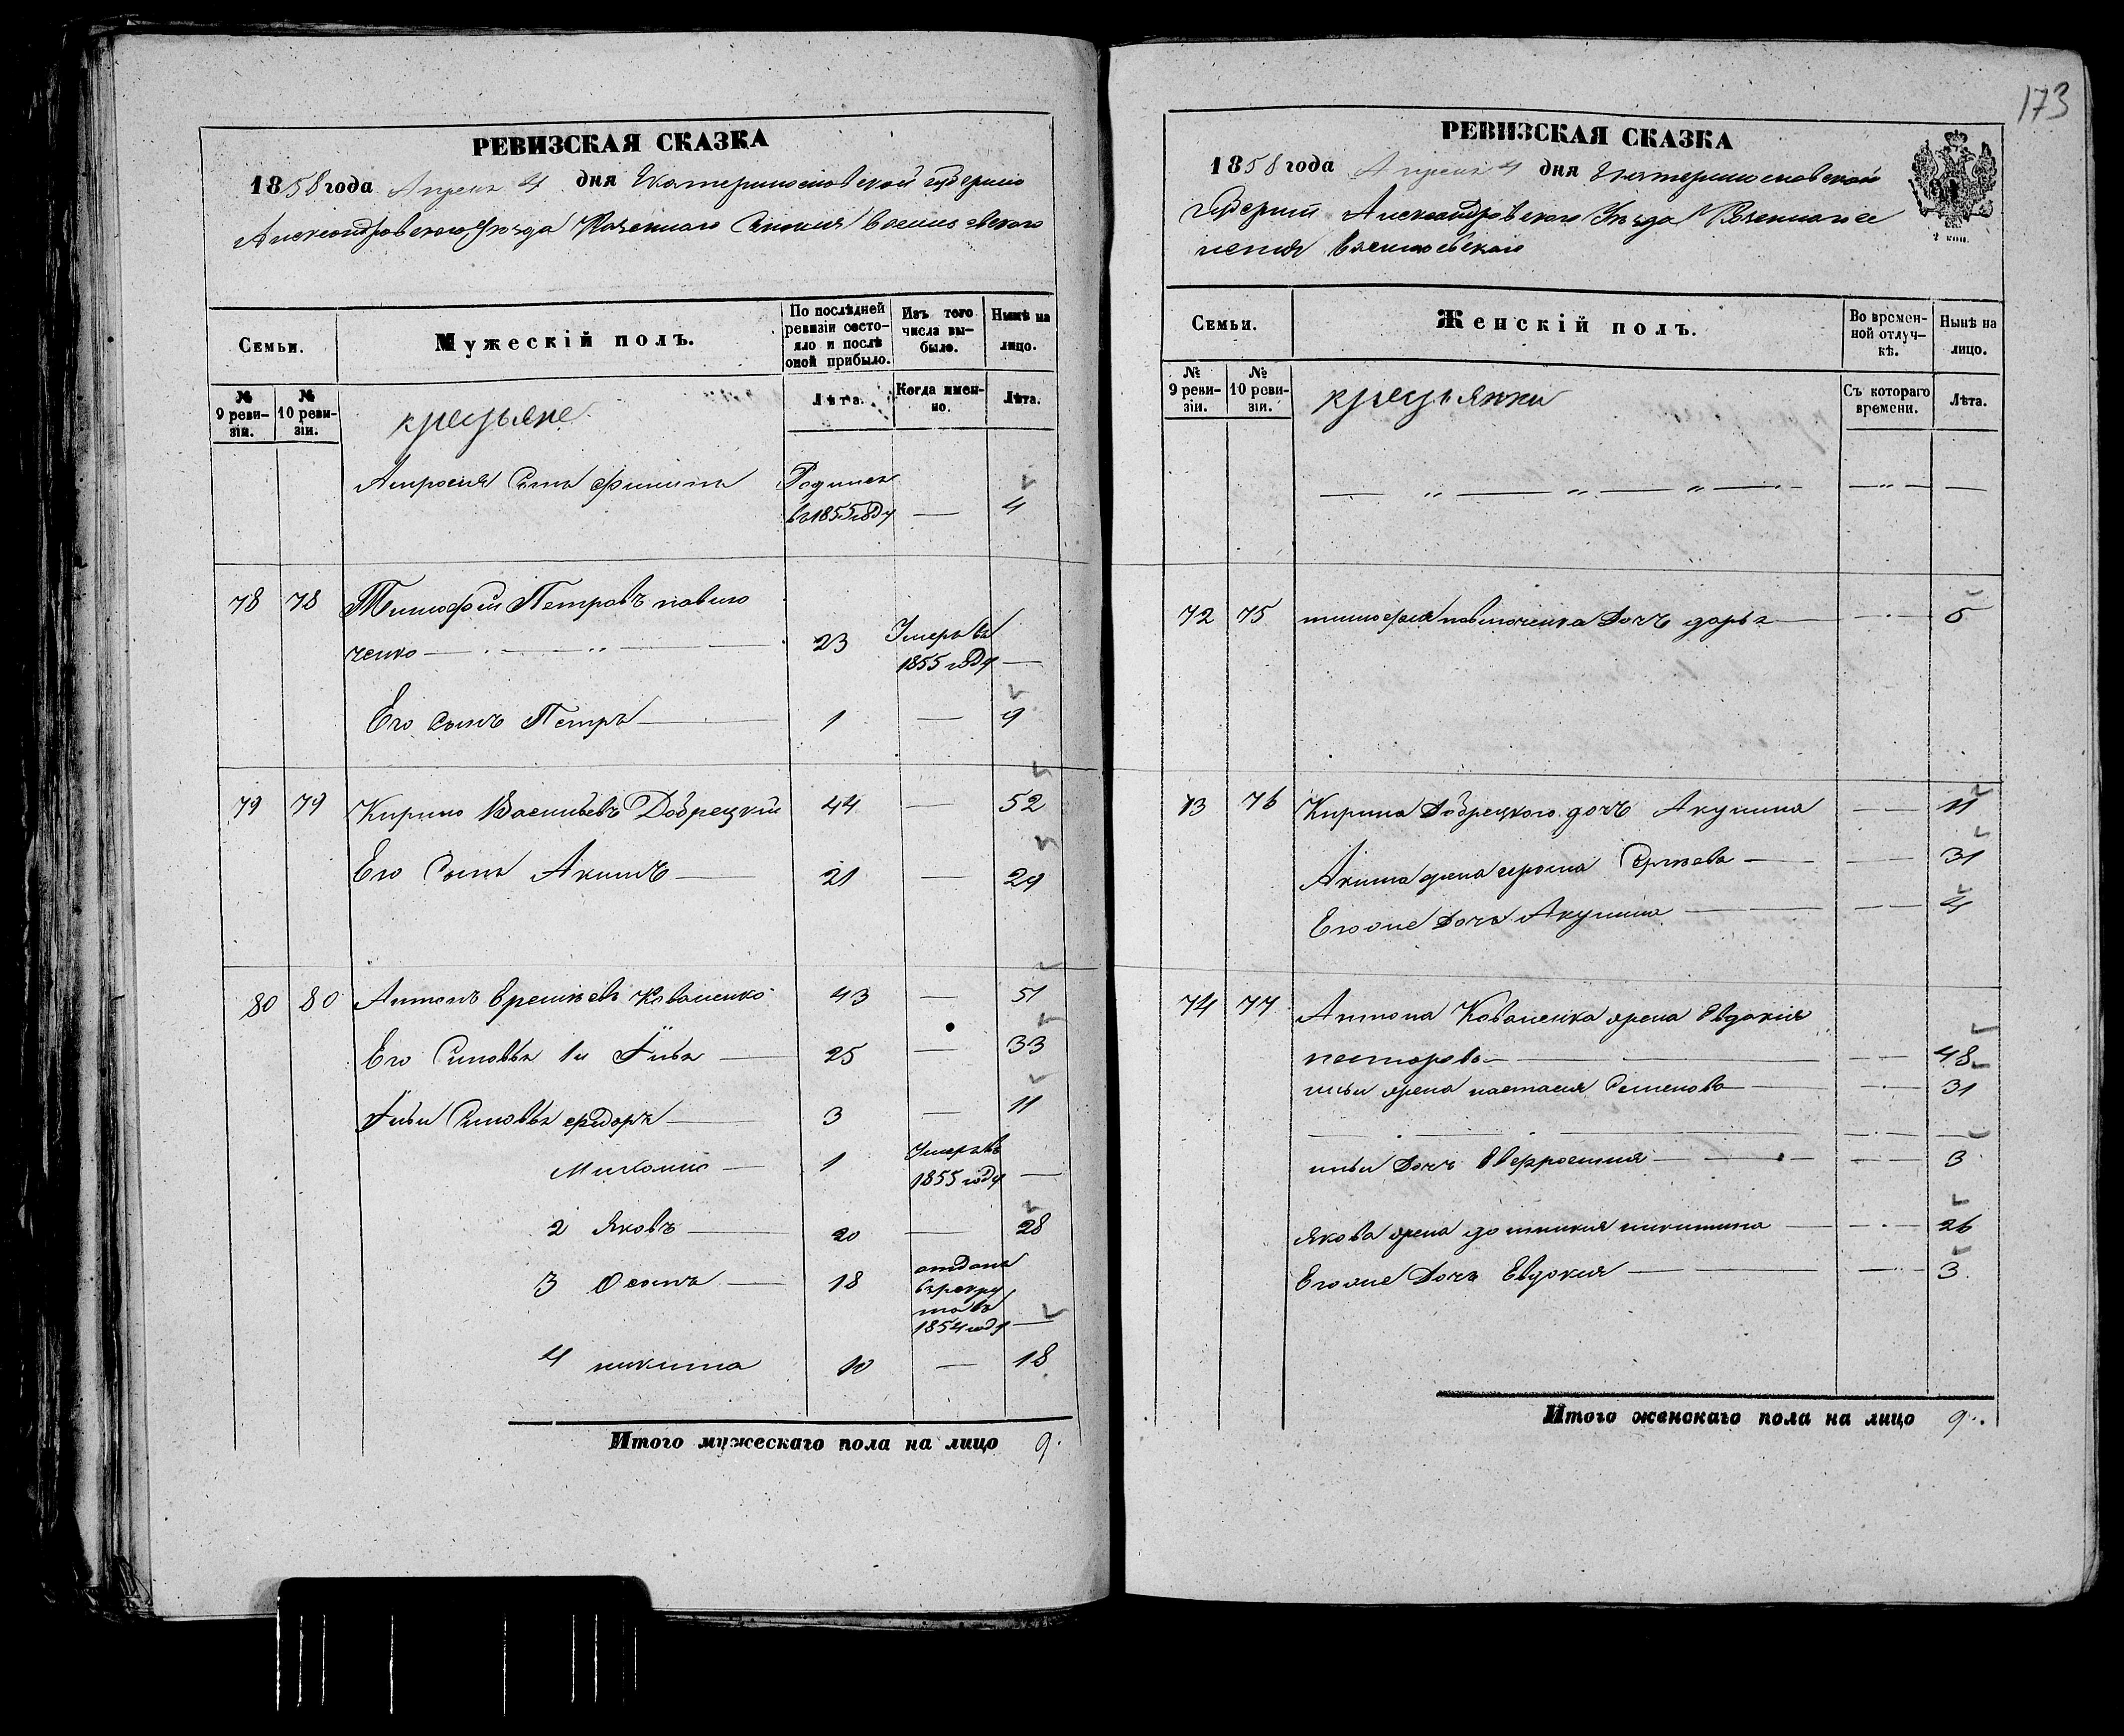 РЕВИЗСКАЯ СКАЗКА
1858 года Апреля 4 дня Екатеринославской губернiи
Александровского уѣзда Казенного Селения Васильевского
Семьи.
Мужескiй полъ.
По послѣдней ревизiи состояло и послѣ оной прибыло.
Изъ того числа выбыло.
Нынѣ на лицо.
№ 9 ревизiи.
№ 10 ревизiи.
крестьяне
Лѣта.
Когда именно.
Лѣта.
Сынъ Филипъ Родился
въ 1855 году — 4
78 78 Тимофей Петровъ павло
ченко — 23 Умеръ въ
1855 году —
Его сынъ Петръ — 1 — 9
79 79 Кирило Васильевъ Добрецкiй 44 — 52
Его Сынъ Акимъ — 21 — 29
80 80 Антонъ Коваленко 43 — 51
Его Сыновья 1й Илья — 25 — 33
Ильи Сыновья — 3 — 11
Михаило — 1 Умеръ въ
1855 году —
2 Яковъ — 20 — 28
3 Осипъ — 18 отданъ
въ рекру
та въ
1854 году —
4 никита 10 — 18
Итого мужескаго пола на лицо 9.
173
РЕВИЗСКАЯ СКАЗКА
1858 года Апреля 4 дня Екатеринославской
Губернiи Александровского Уѣзда Казеннаго се
ления Васильевского
2 коп.
Семьи.
Женскiй полъ.
Во временной отлучкѣ.
Нынѣ на лицо.
№ 9 ревизiи.
№ 10 ревизiи.
крестьянки
Съ котораго времени.
Лѣта.
72 75 тимофея павлоченка Дочь дарья — 5
73 76 Кирила Добрецкого дочь Акулина — 11
Акима жена — 31
Егоже Дочь Акулина — 4
74 77 Антона Коваленка жена Евдокiя
несторова — 48
ильи жена настасия Семенова — 31
ильи Дочь — 3
Якова жена никитина — 26
Егоже Дочь Евдокия — 3
Итого женскаго пола на лицо 9.